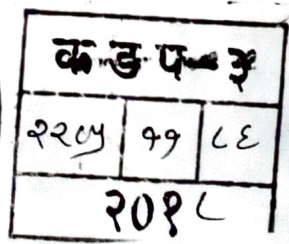 क ड प - ३
२२७५ ११ ८६
२०१८